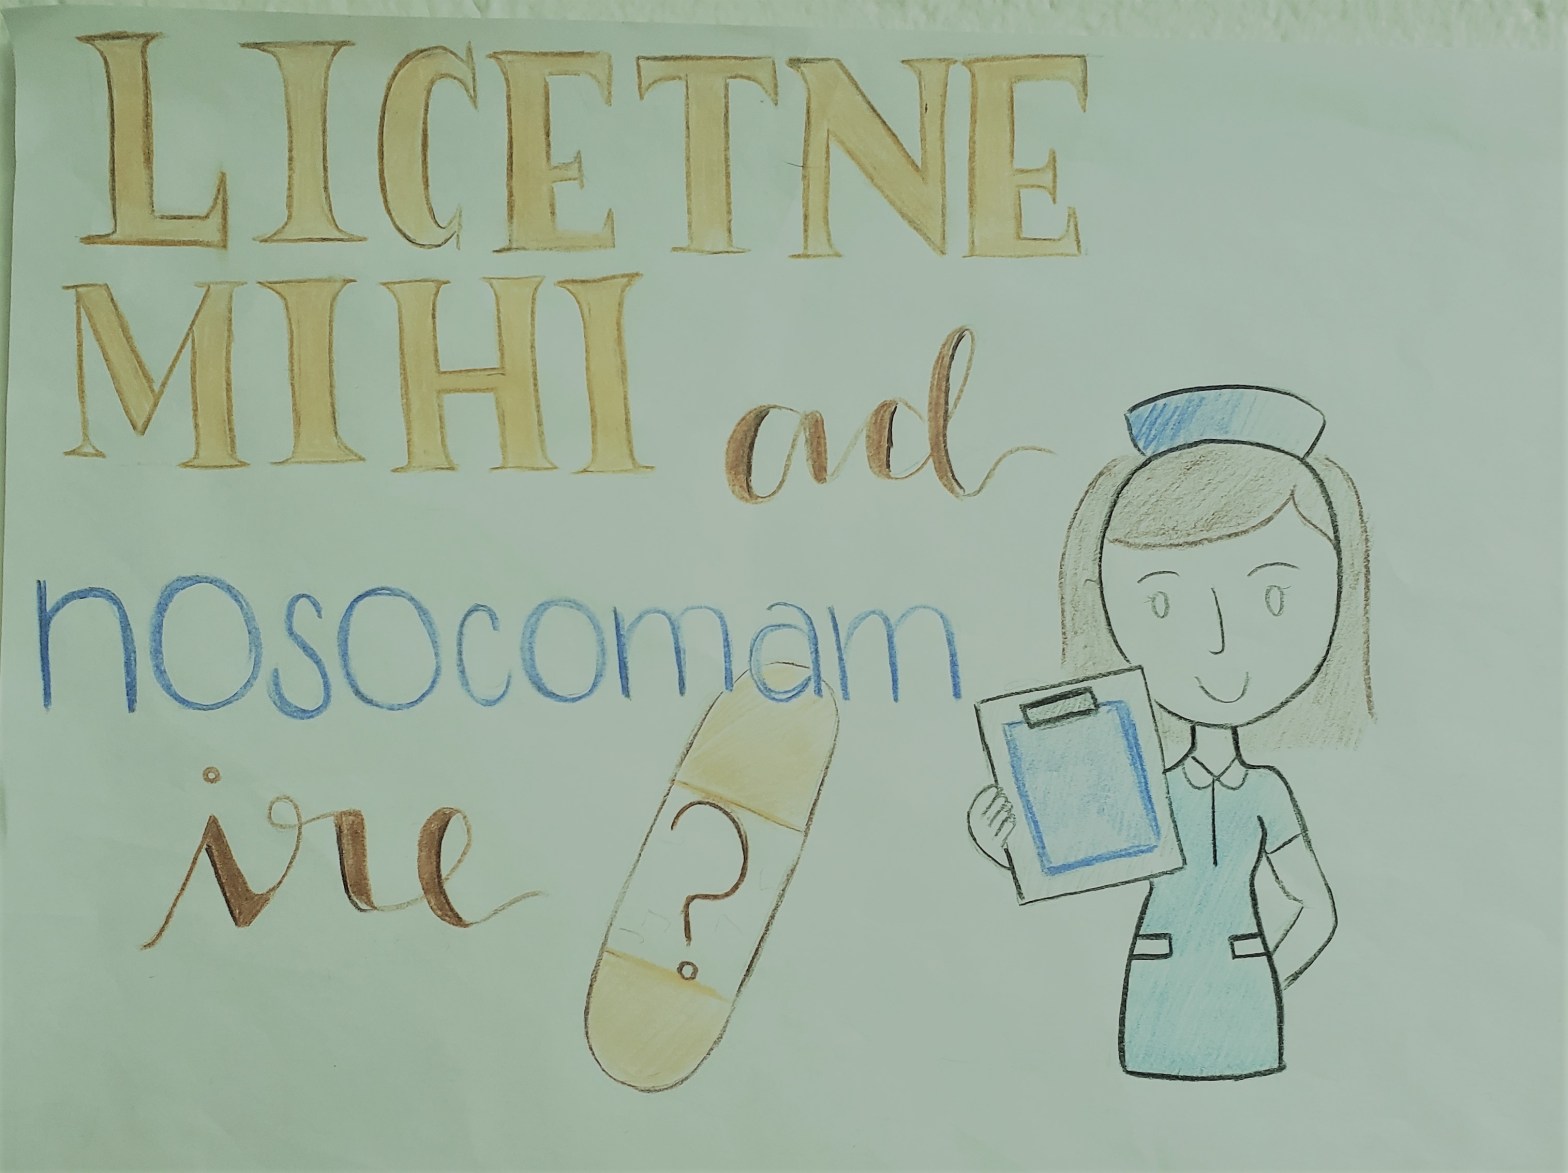 LICETNE
MIHI ad
nosocomam
ire ?